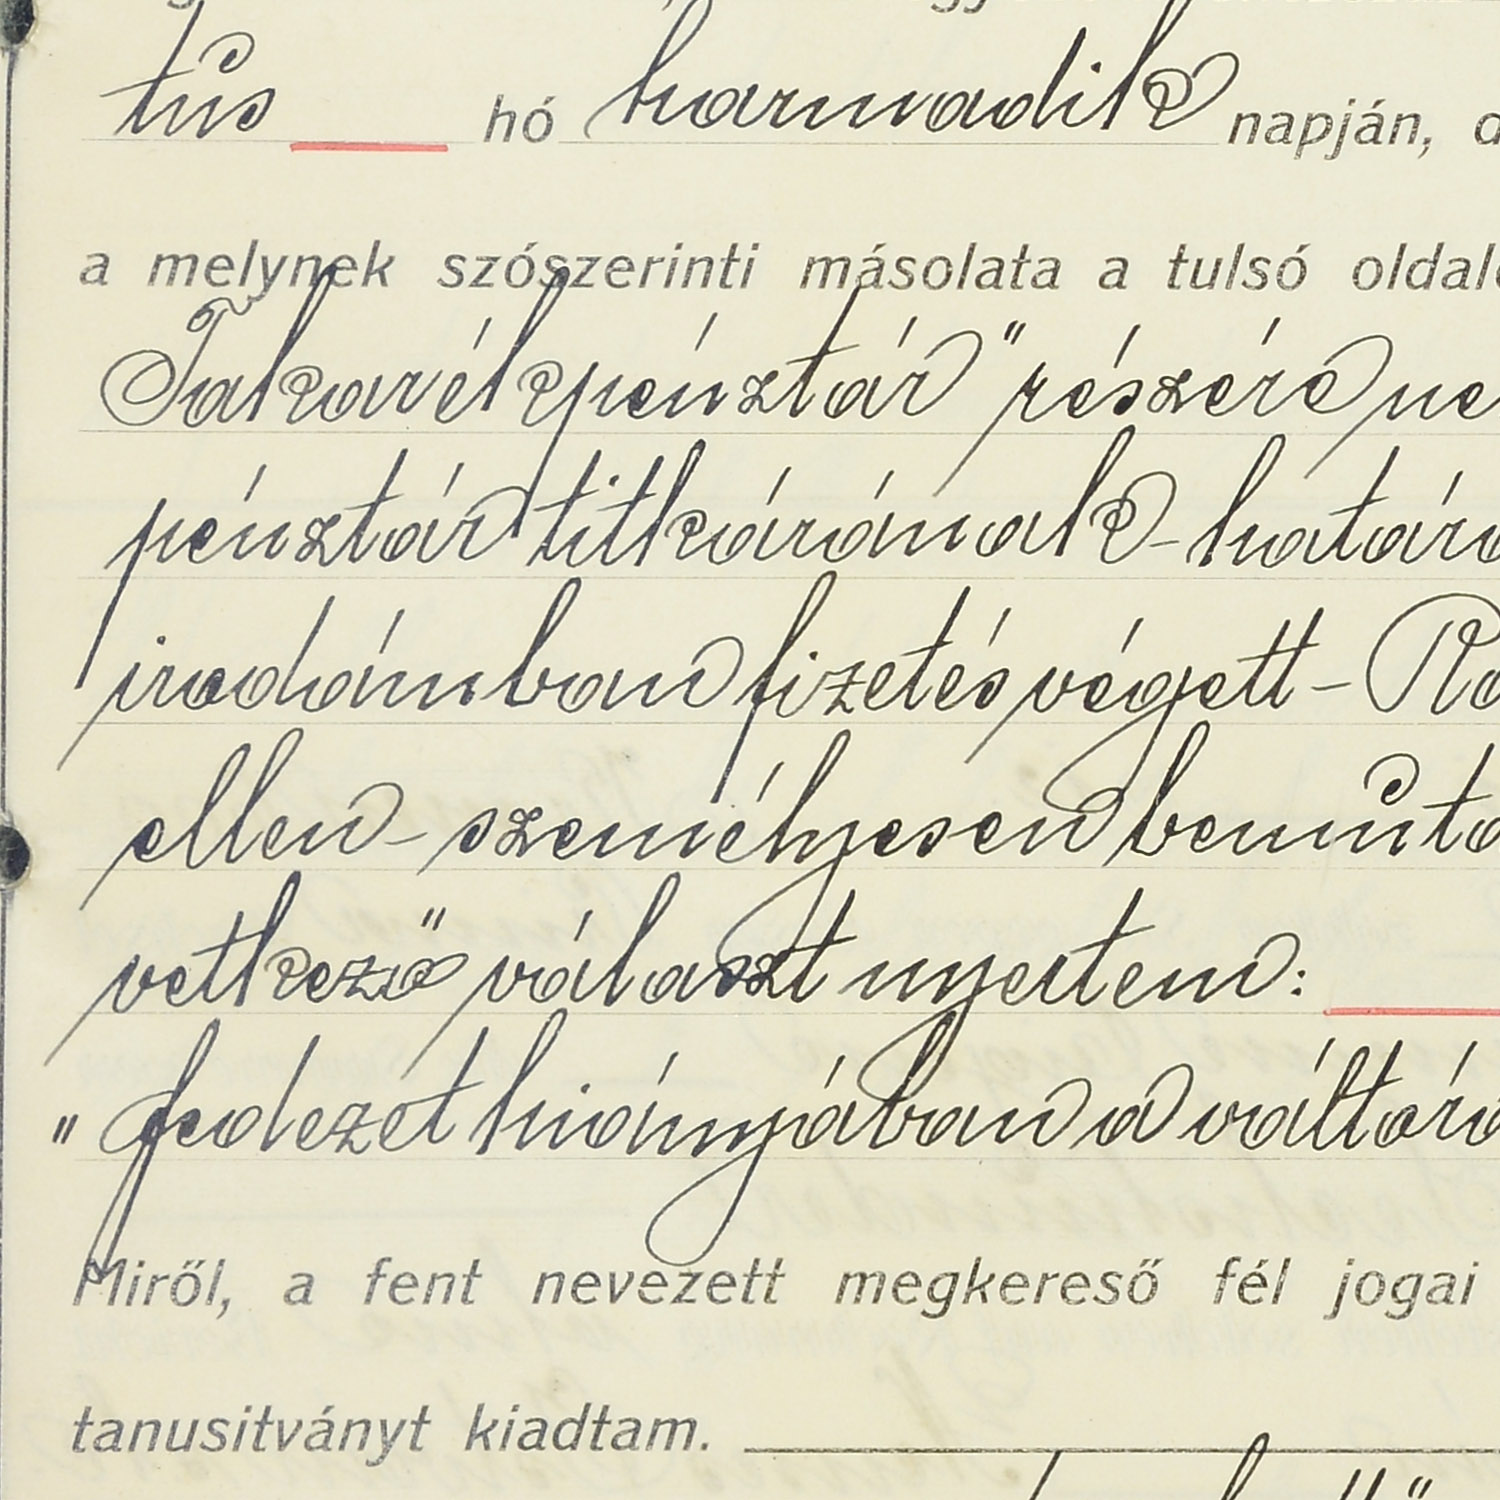 tus hó harmadik napján, d
a melynek szószerinti másolata a tulsó oldal
Takarékpénztár" részére ne
pénztár titkárának - határ
irodámban fizetés végett - Ra
ellen - személyesen bemuta
vetkező választ nyertem:
"fedezet hiányában a váltóra
Miről, a fent nevezett megkereső fél jogai
tanusitványt kiadtam.